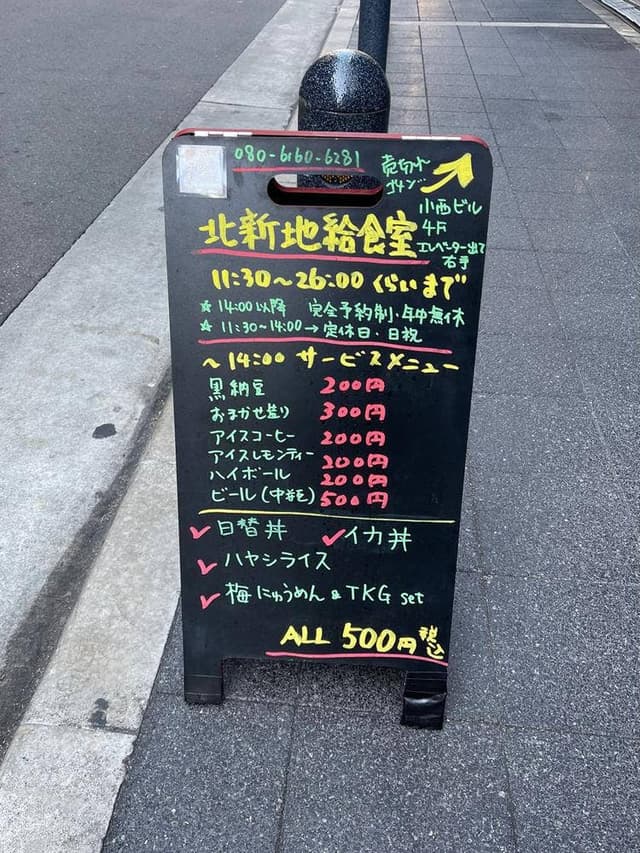 080-6160-6281
売切れ
ゴメン
小西ビル
4F
エレベーター出て
右手
北新地給食室
11:30～26:00くらいまで
☆14:00以降 完全予約制・年中無休
☆11:30～14:00→定休日・日祝
～14:00 サービスメニュー
黒納豆 200円
おまかせ盛り 300円
アイスコーヒー 200円
アイスレモンティー 200円
ハイボール 200円
ビール(中瓶) 500円
✓日替丼 ✓イカ丼
✓ハヤシライス
✓梅にゅうめん&TKG set
ALL 500円税込